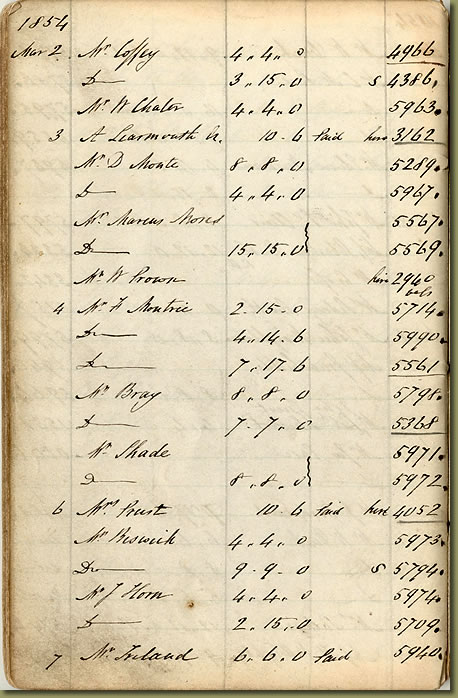 1854
Mar 2. Mr Coffey 4 .. 4 .. 0 4966
Do 3 .. 15 .. 0 S 4386.
Mr W Chater 4 .. 4 .. 0 5963.
3 A Learmouth 10 .. 6 Paid hire 3162
Mr D Monte 8 .. 8 .. 0 5289.
Do 4 .. 4 .. 0 5967.
Mr Marcus Moses 5567.
Do 15 .. 15 .. 0 5569.
Mr W Brown hire 2940
4 Mr F Montrie 2 .. 15 .. 0 5714.
Do 4 .. 14 .. 6 5990.
Do 7 .. 17 .. 6 5561
Mr Bray 8 .. 8 .. 0 5798.
Do 7 .. 7 .. 0 5368
Mr Shade 5971.
Do 8 .. 8 .. 0 5972.
6 Mrs Prust 10 .. 6 Paid hire 4052
Mr Keswick 4 .. 4 .. 0 5973.
Do 9 .. 9 .. 0 S 5794.
Mr J Horn 4 .. 4 .. 0 5974.
Do 2 .. 15 .. 0 5709.
7 Mr Ireland 6 .. 6 .. 0 Paid 5940.